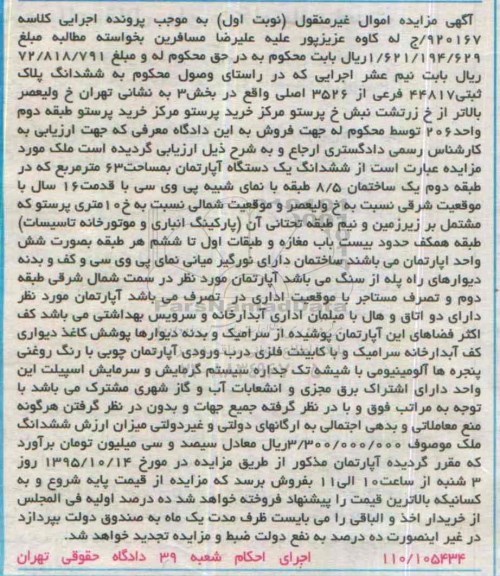 آگهی مزایده اموال غیرمنقول (نوبت اول) به موجب پرونده اجرایی کلاسه
۹۲۰۱۶۷/ج له کاوه عزیزپور علیه علیرضا مسافرین بخواسته مطالبه مبلغ
۱/۶۲۱/۱۹۴/۶۲۹ریال بابت محکوم به در حق محکوم له و مبلغ ۷۲/۸۱۸/۷۹۱
ریال بابت نیم عشر اجرایی که در راستای وصول محکوم به ششدانگ پلاک
ثبتی۴۴۸۱۷ فرعی از ۳۵۲۶ اصلی واقع در بخش۳ به نشانی تهران خ ولیعصر
بالاتر از خ زرتشت نبش خ پرستو مرکز خرید پرستو مرکز خرید پرستو طبقه دوم
واحد۲۰۶ توسط محکوم له جهت فروش به این دادگاه معرفی که جهت ارزیابی به
کارشناس رسمی دادگستری ارجاع و به شرح ذیل ارزیابی گردیده است ملک مورد
مزایده عبارت است از ششدانگ یک دستگاه آپارتمان بمساحت۶۳ مترمربع که در
طبقه دوم یک ساختمان ۸/۵ طبقه با نمای شبیه پی وی سی با قدمت۱۶ سال با
موقعیت شرقی نسبت به خ ولیعصر و موقعیت شمالی نسبت به خ۱۰متری پرستو که
مشتمل بر زیرزمین و نیم طبقه تحتانی آن (پارکینگ انباری و موتورخانه تاسیسات)
طبقه همکف حدود بیست باب مغازه و طبقات اول تا ششم هر طبقه بصورت شش
واحد اپارتمان می باشند ساختمان دارای نورگیر میانی نمای پی وی سی و کف و بدنه
دیوارهای راه پله از سنگ می باشد آپارتمان مورد نظر در سمت شمال شرقی طبقه
دوم و تصرف مستاجر با موقعیت اداری در تصرف می باشد آپارتمان مورد نظر
دارای دو اتاق و هال با مبلمان اداری آبدارخانه و سرویس بهداشتی می باشد کف
اکثر فضاهای این آپارتمان پوشیده از سرامیک و بدنه دیوارها پوشش کاغذ دیواری
کف آبدارخانه سرامیک و با کابینت فلزی درب ورودی آپارتمان چوبی با رنگ روغنی
پنجره ها آلومینیومی با شیشه تک جداره سیستم گرمایش و سرمایش اسپیلت این
واحد دارای اشتراک برق مجزی و انشعابات آب و گاز شهری مشترک می باشد با
توجه به مراتب فوق و با در نظر گرفته جمیع جهات و بدون در نظر گرفتن هرگونه
منع معاملاتی و بدهی اجتمالی به ارگانهای دولتی و غیردولتی میزان ارزش ششدانگ
ملک موصوف ۳/۳۰۰/۰۰۰/۰۰۰ریال معادل سیصد و سی میلیون تومان برآورد
که مقرر گردیده آپارتمان مذکور از طریق مزایده در مورخ ۱۳۹۵/۱۰/۱۴ روز
۳ شنبه از ساعت۱۰ الی۱۱ بفروش برسد که مزایده از قیمت پایه شروع و به
کسانیکه بالاترین قیمت را پیشنهاد فروخته خواهد شد ده درصد اولیه فی المجلس
از خریدار اخذ و الباقی را می بایست ظرف مدت یک ماه به صندوق دولت بپردازد
در غیر اینصورت ده درصد به نفع دولت ضبط و مزایده تجدید خواهد شد.
۱۱۰/۱۰۵۴۳۴ اجرای احکام شعبه ۳۹ دادگاه حقوقی تهران